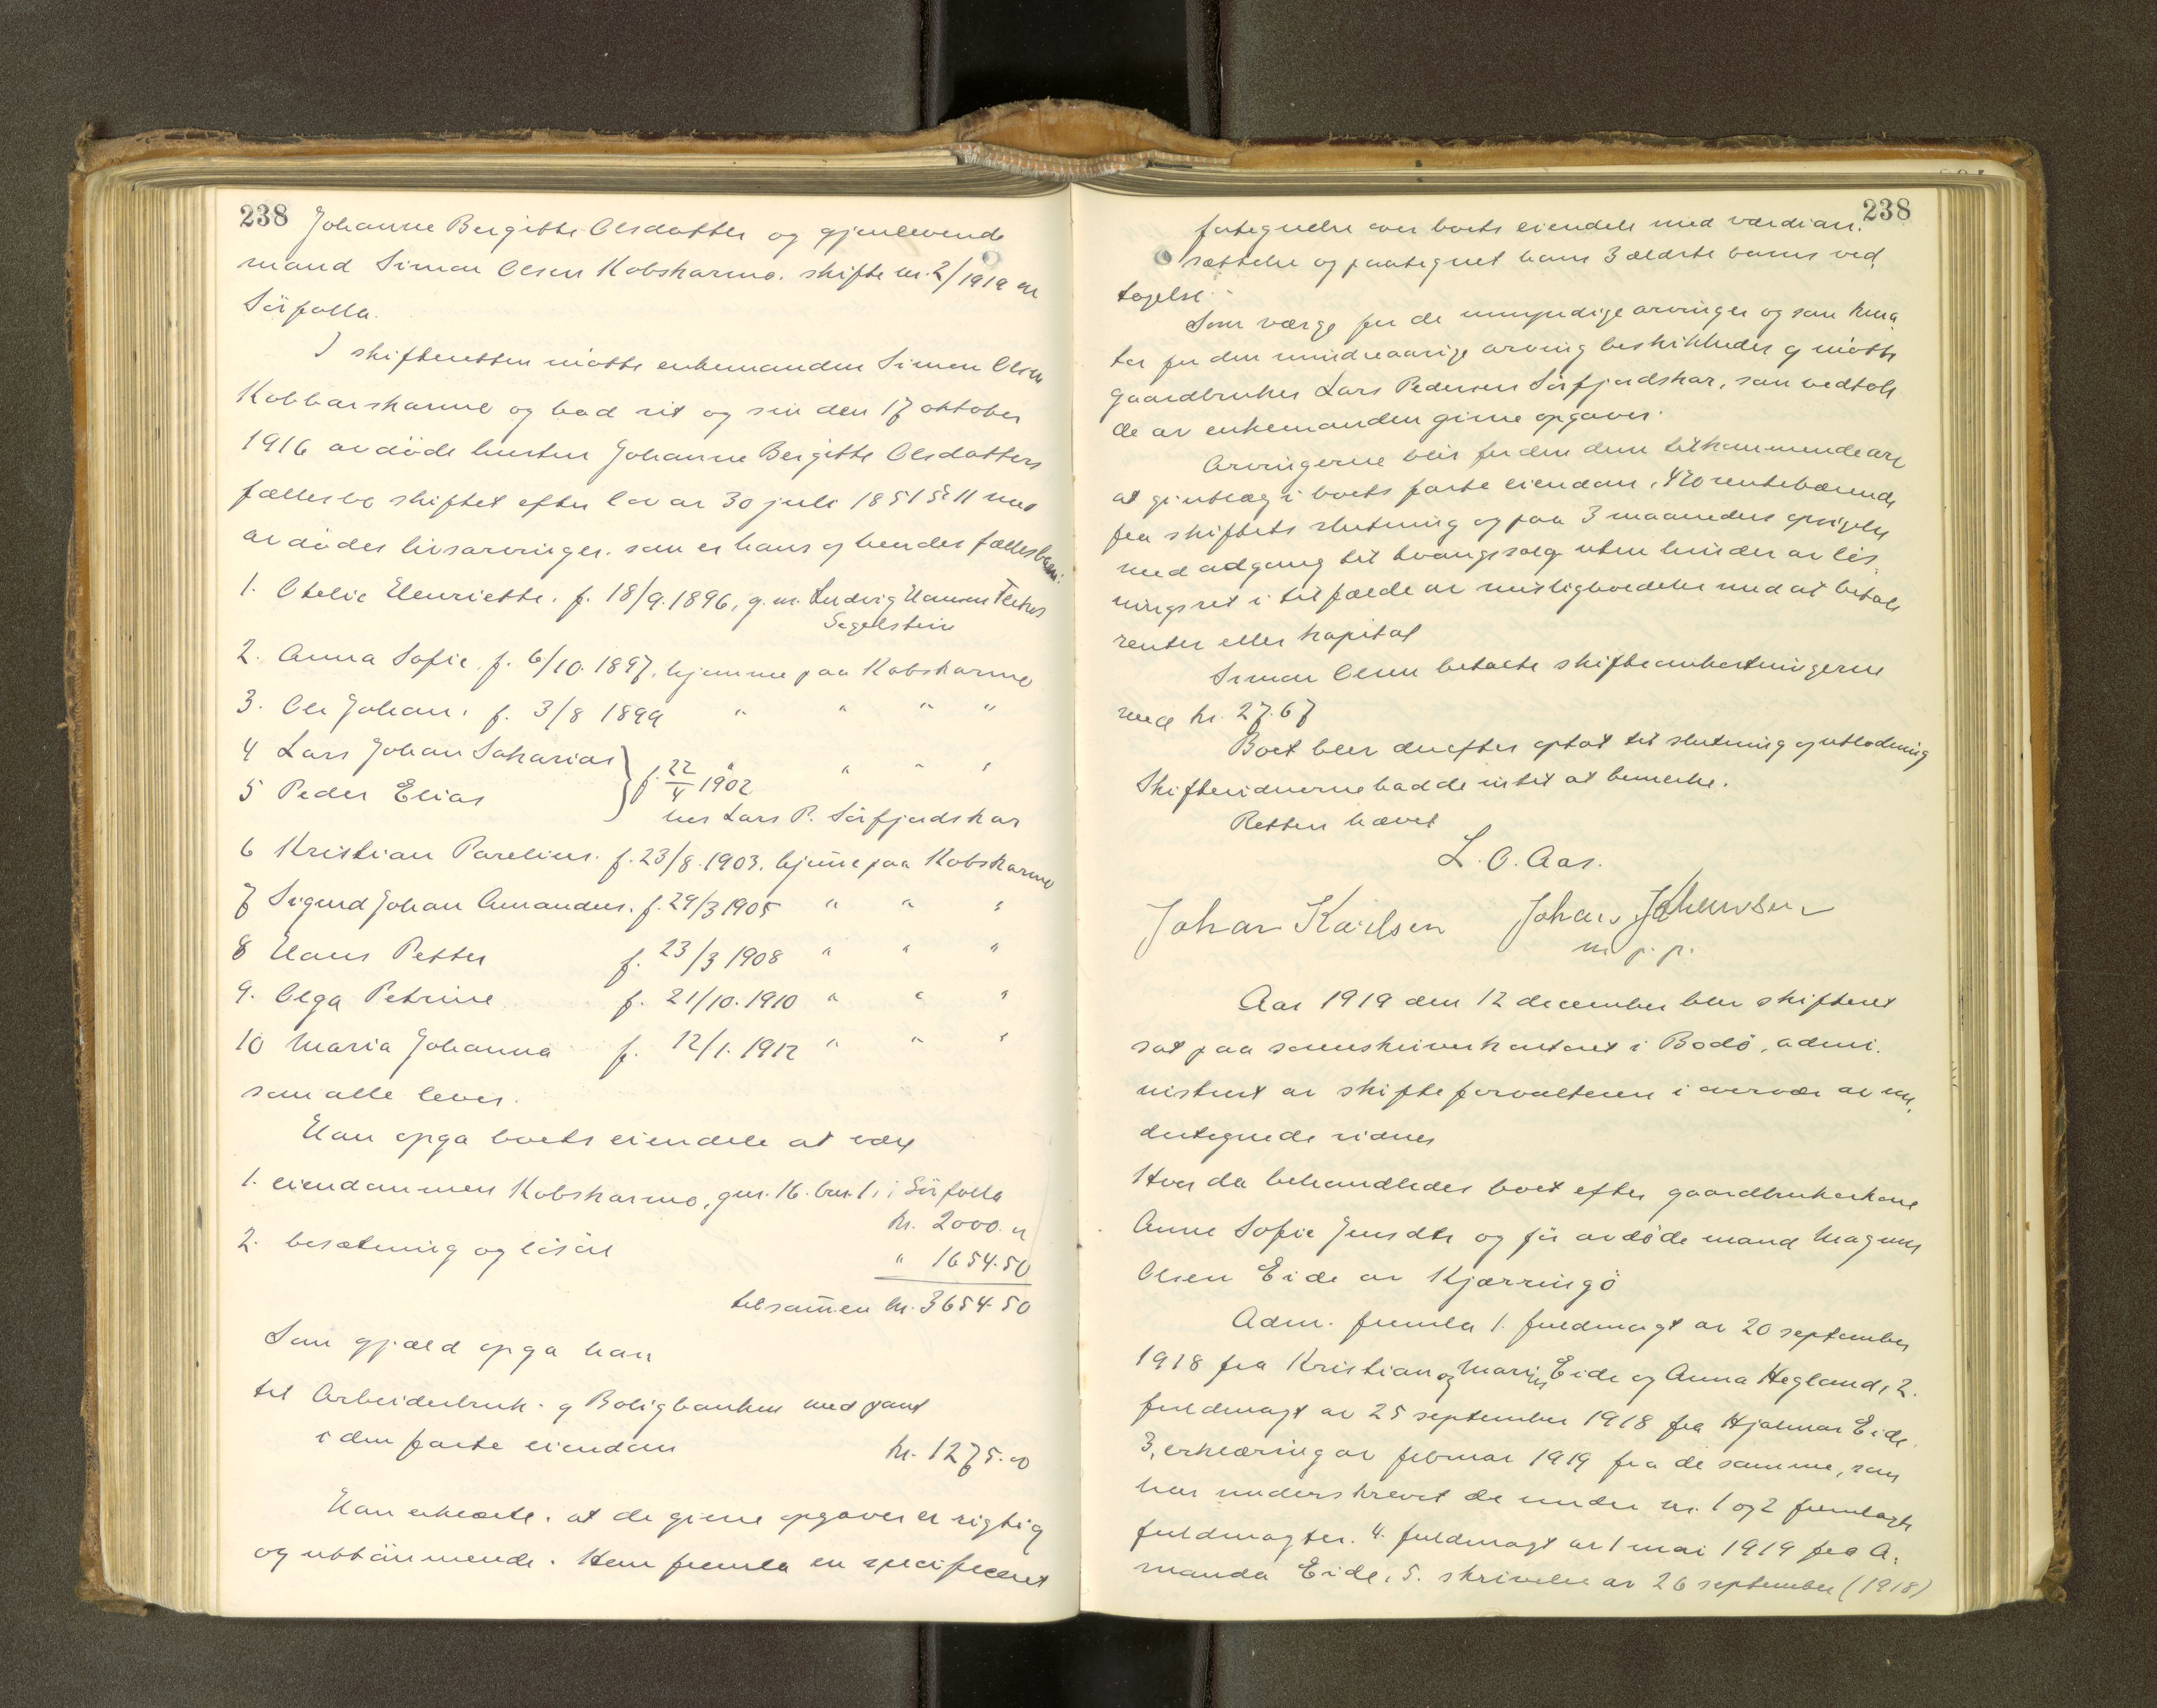 238
Johanne Bergitte Olsdatter og gjenlevende
mand Simon Olsen Kobskarmo. skifte nr. 2/1919 av
Sörfolla.
I skifteretten mötte enkemanden Simon Olsen
Kobbarskarmo og bad sit og sin den 17 oktober
1916 avdöde hustru Johanne Bergitte Olsdatters
fællesbo skiftet efter lov av 30 juli 1851 § 11 med
avdödes livsarvinger. som er hans og hendes fællesbarn:
1. Otelie Henriette. f. 18/9.1896, g.m. Ludvig Hansen
Segelstein
2. Anna Sofie. f. 6/10.1897. hjemme paa Kobskarmo
3. Ole Johan. f. 3/8 1899 " " " "
4 Lars Johan Sakarias } f. 22/4 1902 " " " "
5 Peder Elias
hos Lars P. Sörfjordskar
6 Kristian Parelius. f. 23/8.1903. hjem̄e paa Kobskarmo
7 Sigurd Johan Amandus. f. 29/3 1905 " " "
8 Hans Petter f. 23/3 1908 " " "
9. Olga Petrine f. 21/10.1910 " " "
10 Maria Johanna f. 12/1.1912 " " "
som alle lever.
Han opga boets eiendele at være
1. eiendommen Kobskarmo, gnr. 16. bnr. 1, i Sörfolla
kr. 2000.00
2. besætning og lösöre " 1654.50
tilsam̄en kr. 3654.50
Som gjæld opga han
til Arbeiderbruk- og Boligbanken med pant
i den faste eiendom kr. 1275.00
Han erklærte, at de givne opgaver er rigtig
og uttömmende. Han fremla en specificeret
238
fortegnelse over boets eiendele med værdian-
sættelse og paategnet hans 3 ældste barns ved-
tagelse.-
Som værge for de umyndige arvinger og som kura-
tor for den mindreaarige arving beskikkedes og mötte
gaardbruker Lars Pedersen Sörfjordskar, som vedtok
de av enkemanden givne opgaver.
Arvingerne blir for den dem tilkommende arv
at gi utlæg i boets faste eiendom, 4% rentebærende
fra skiftets slutning og paa 3 maaneders opsigelse
med adgang til tvangssalg uten hinder av lös-
ningsret i tilfælde av misligholdelse med at betale
renter eller kapital
Simon Olsen betalte skifteomkostningerne
med kr. 27.67
Boet blev derefter optat til slutning og utlodning
Skiftevidnerne hadde intet at bemerke.
Retten hævet
L. O. Aas.
Johan Karlsen Johan Johansen
m.p.p.
Aar 1919 den 12 december blev skifteret
sat paa sorenskriverkontoret i Bodö, admi-
nistrert av skifteforvalteren i overvær av un-
dertegnede vidner
Hvor da behandledes boet efter gaardbrukerkone
Anne Sofie Jensdtr og för avdöde mand Magnus
Olsen Eide av Kjærringö
Adm. fremla 1. fuldmagt av 20 september
1918 fra Kristian og Marius Eide og Anna Hegland, 2.
fuldmagt av 25 september 1918 fra Hjalmar Eide
3, erklæring av februar 1919 fra de samme, som
har underskrevet de under nr. 1 og 2 fremlagte
fuldmagter. 4. fuldmagt av 1 mai 1919 fra A-
manda Eide, 5. skrivelse av 26 september (1918)